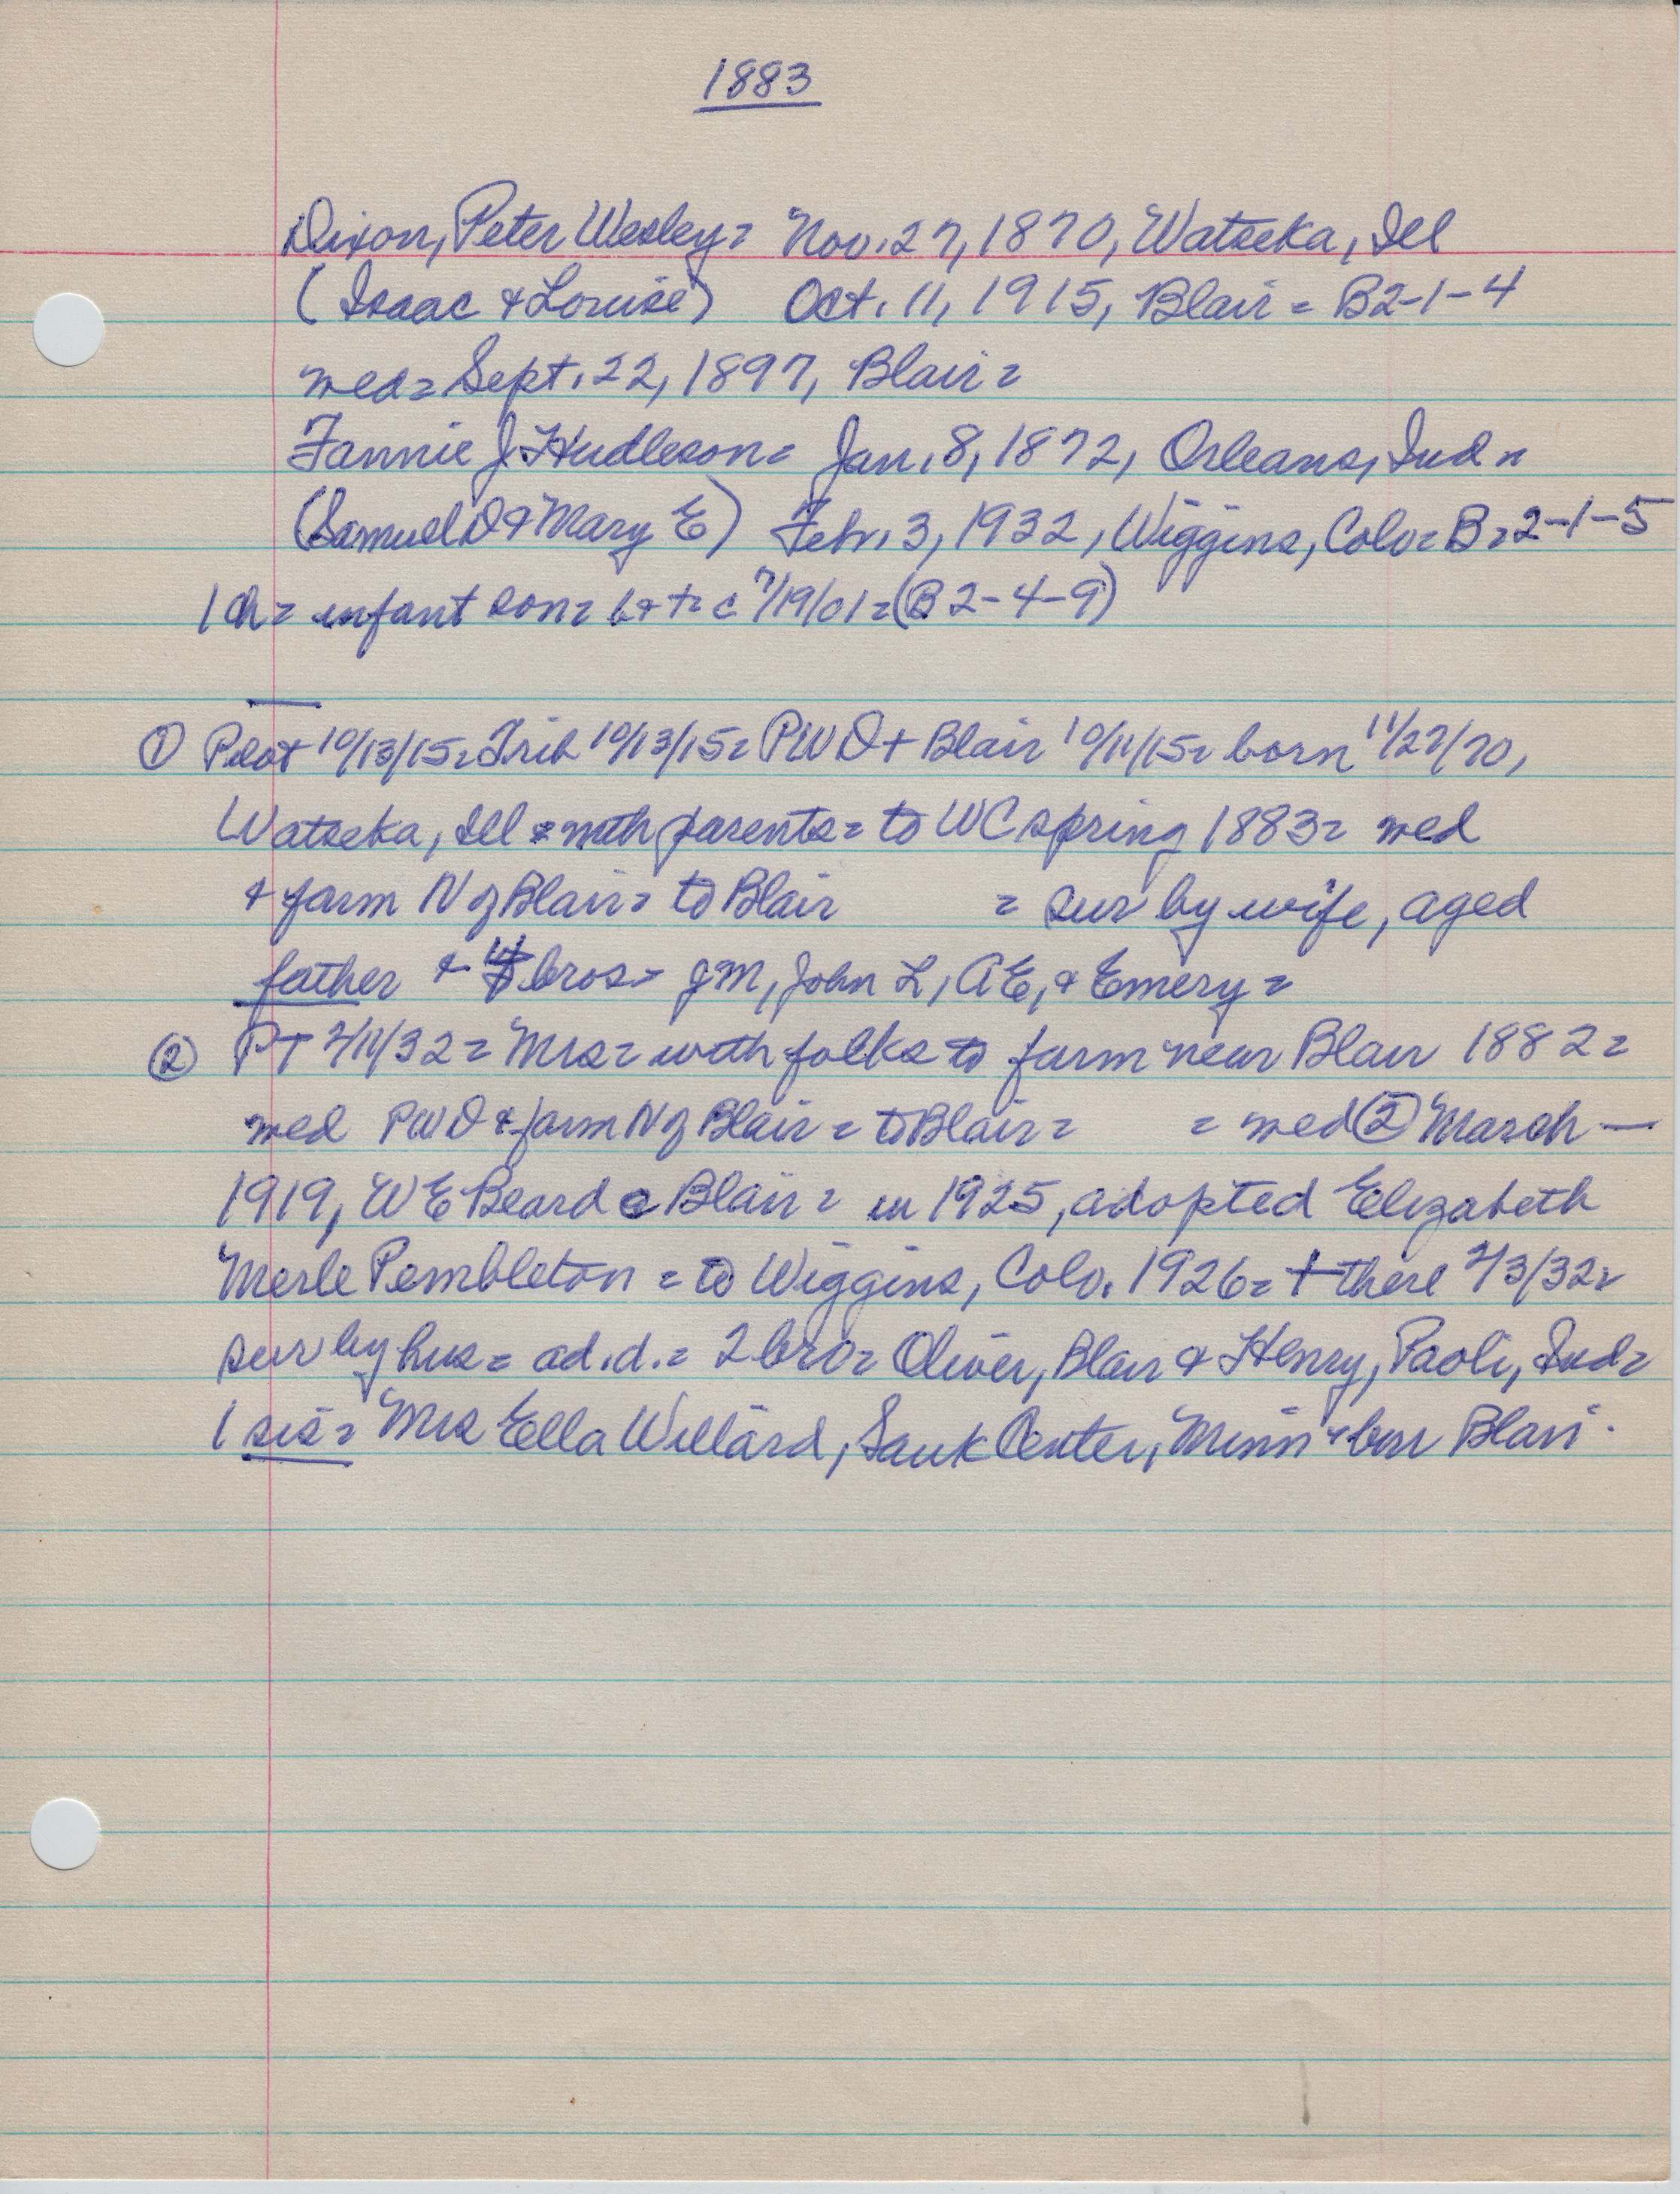 1883
Dixon, Peter Wesley = Nov. 27, 1870, Watseka, Ill
(Isaac & Louise) Oct. 11, 1915, Blair = B2-1-4
med = Sept. 22, 1897, Blair =
Fannie J. Hudleson = Jan. 8, 1872, Orleans, Ind =
(Samuel D & Mary E) Febr. 3, 1932, Wiggins, Colo = B = 2-1-5
1 ch = infant son = b & + = c 7/19/01 = (B 2-4-9)
① Pilot 10/13/15 = Trib 10/13/15 = PWD + Blair 10/11/15 = born 11/27/70,
Watseka, Ill = with parents = to WC spring 1883 = med
& farm N of Blair = to Blair = sur by wife, aged
father & 4 bros = J M, John L, A E, & Emery =
② PT 2/11/32 = Mrs = with folks to farm near Blair 1882 =
med PWD & farm N of Blair = to Blair = = med ② March —
1919, W E Beard @ Blair = in 1925, adopted Elizabeth
Merle Pembleton = to Wiggins, Colo. 1926 = + there 2/3/32 =
sur by hus = ad. d. = 2 bro = Oliver, Blair & Henry, Paoli, Ind =
1 sis = Mrs Ella Willard, Sauk Center, Minn = bur Blair.